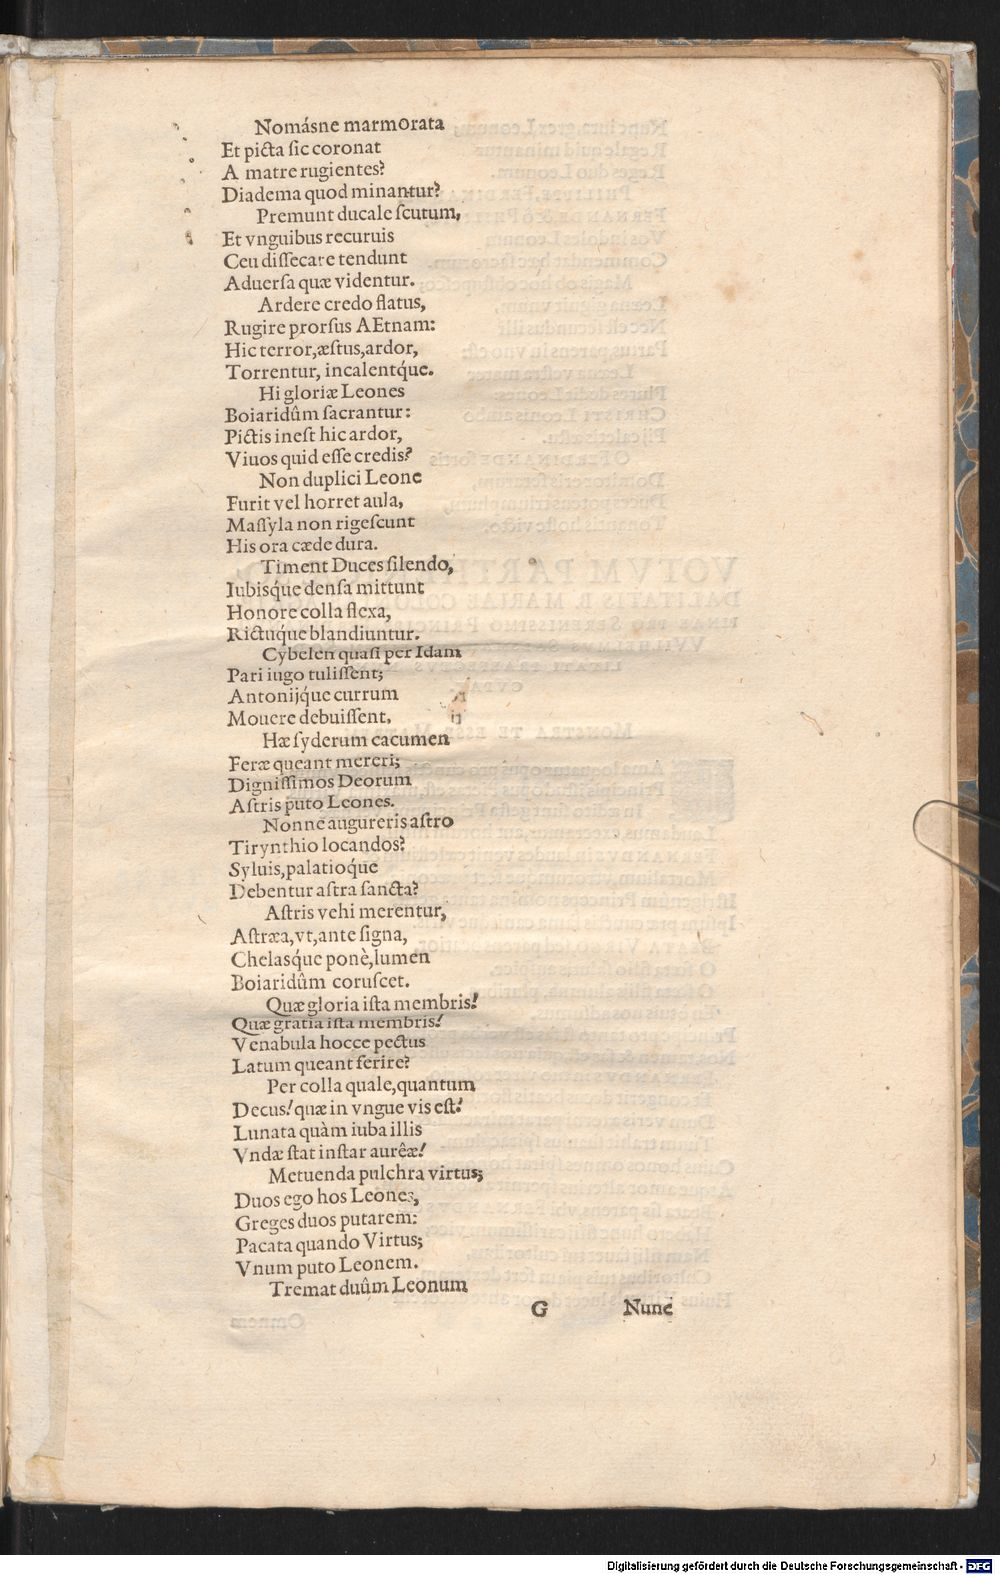 Nomásne marmorata
Et picta sic coronat
A matre rugientes?
Diadema quod minantur?
Premunt ducale scutum,
Et vnguibus recuruis
Ceu dissecare tendunt
Aduersa quæ videntur.
Ardere credo flatus,
Rugire prorsus AEtnam:
Hic terror, æstus, ardor,
Torrentur, incalentq́ue.
Hi gloriæ Leones
Boiaridûm sacrantur:
Pictis inest hic ardor,
Viuos quid esse credis?
Non duplici Leone
Furit vel horret aula,
Massyla non rigescunt
His ora cæde dura.
Timent Duces silendo,
Iubisq́ue densa mittunt
Honore colla flexa,
Rictuq́ue blandiuntur.
Cybelen quasi per Idam
Pari iugo tulissent;
Antonijq́ue currum
Mouere debuissent.
Hæ syderum cacumen
Feræ queant mereri;
Dignissimos Deorum
Astris puto Leones.
Nonne augureris astro
Tirynthio locandos?
Syluis, palatioq́ue
Debentur astra sancta?
Astris vehi merentur,
Astræa, vt, ante signa,
Chelasq́ue ponè, lumen
Boiaridûm coruscet.
Quæ gloria ista membris!
Quæ gratia ista membris!
Venabula hocce pectus
Latum queant ferire?
Per colla quale, quantum
Decus! quæ in vngue vis est!
Lunata quàm iuba illis
Vndæ stat instar aurêæ!
Metuenda pulchra virtus;
Duos ego hos Leones,
Greges duos putarem:
Pacata quando Virtus;
Vnum puto Leonem.
Tremat duûm Leonum
G Nunc
Digitalisierung gefördert durch die Deutsche Forschungsgemeinschaft - DFG